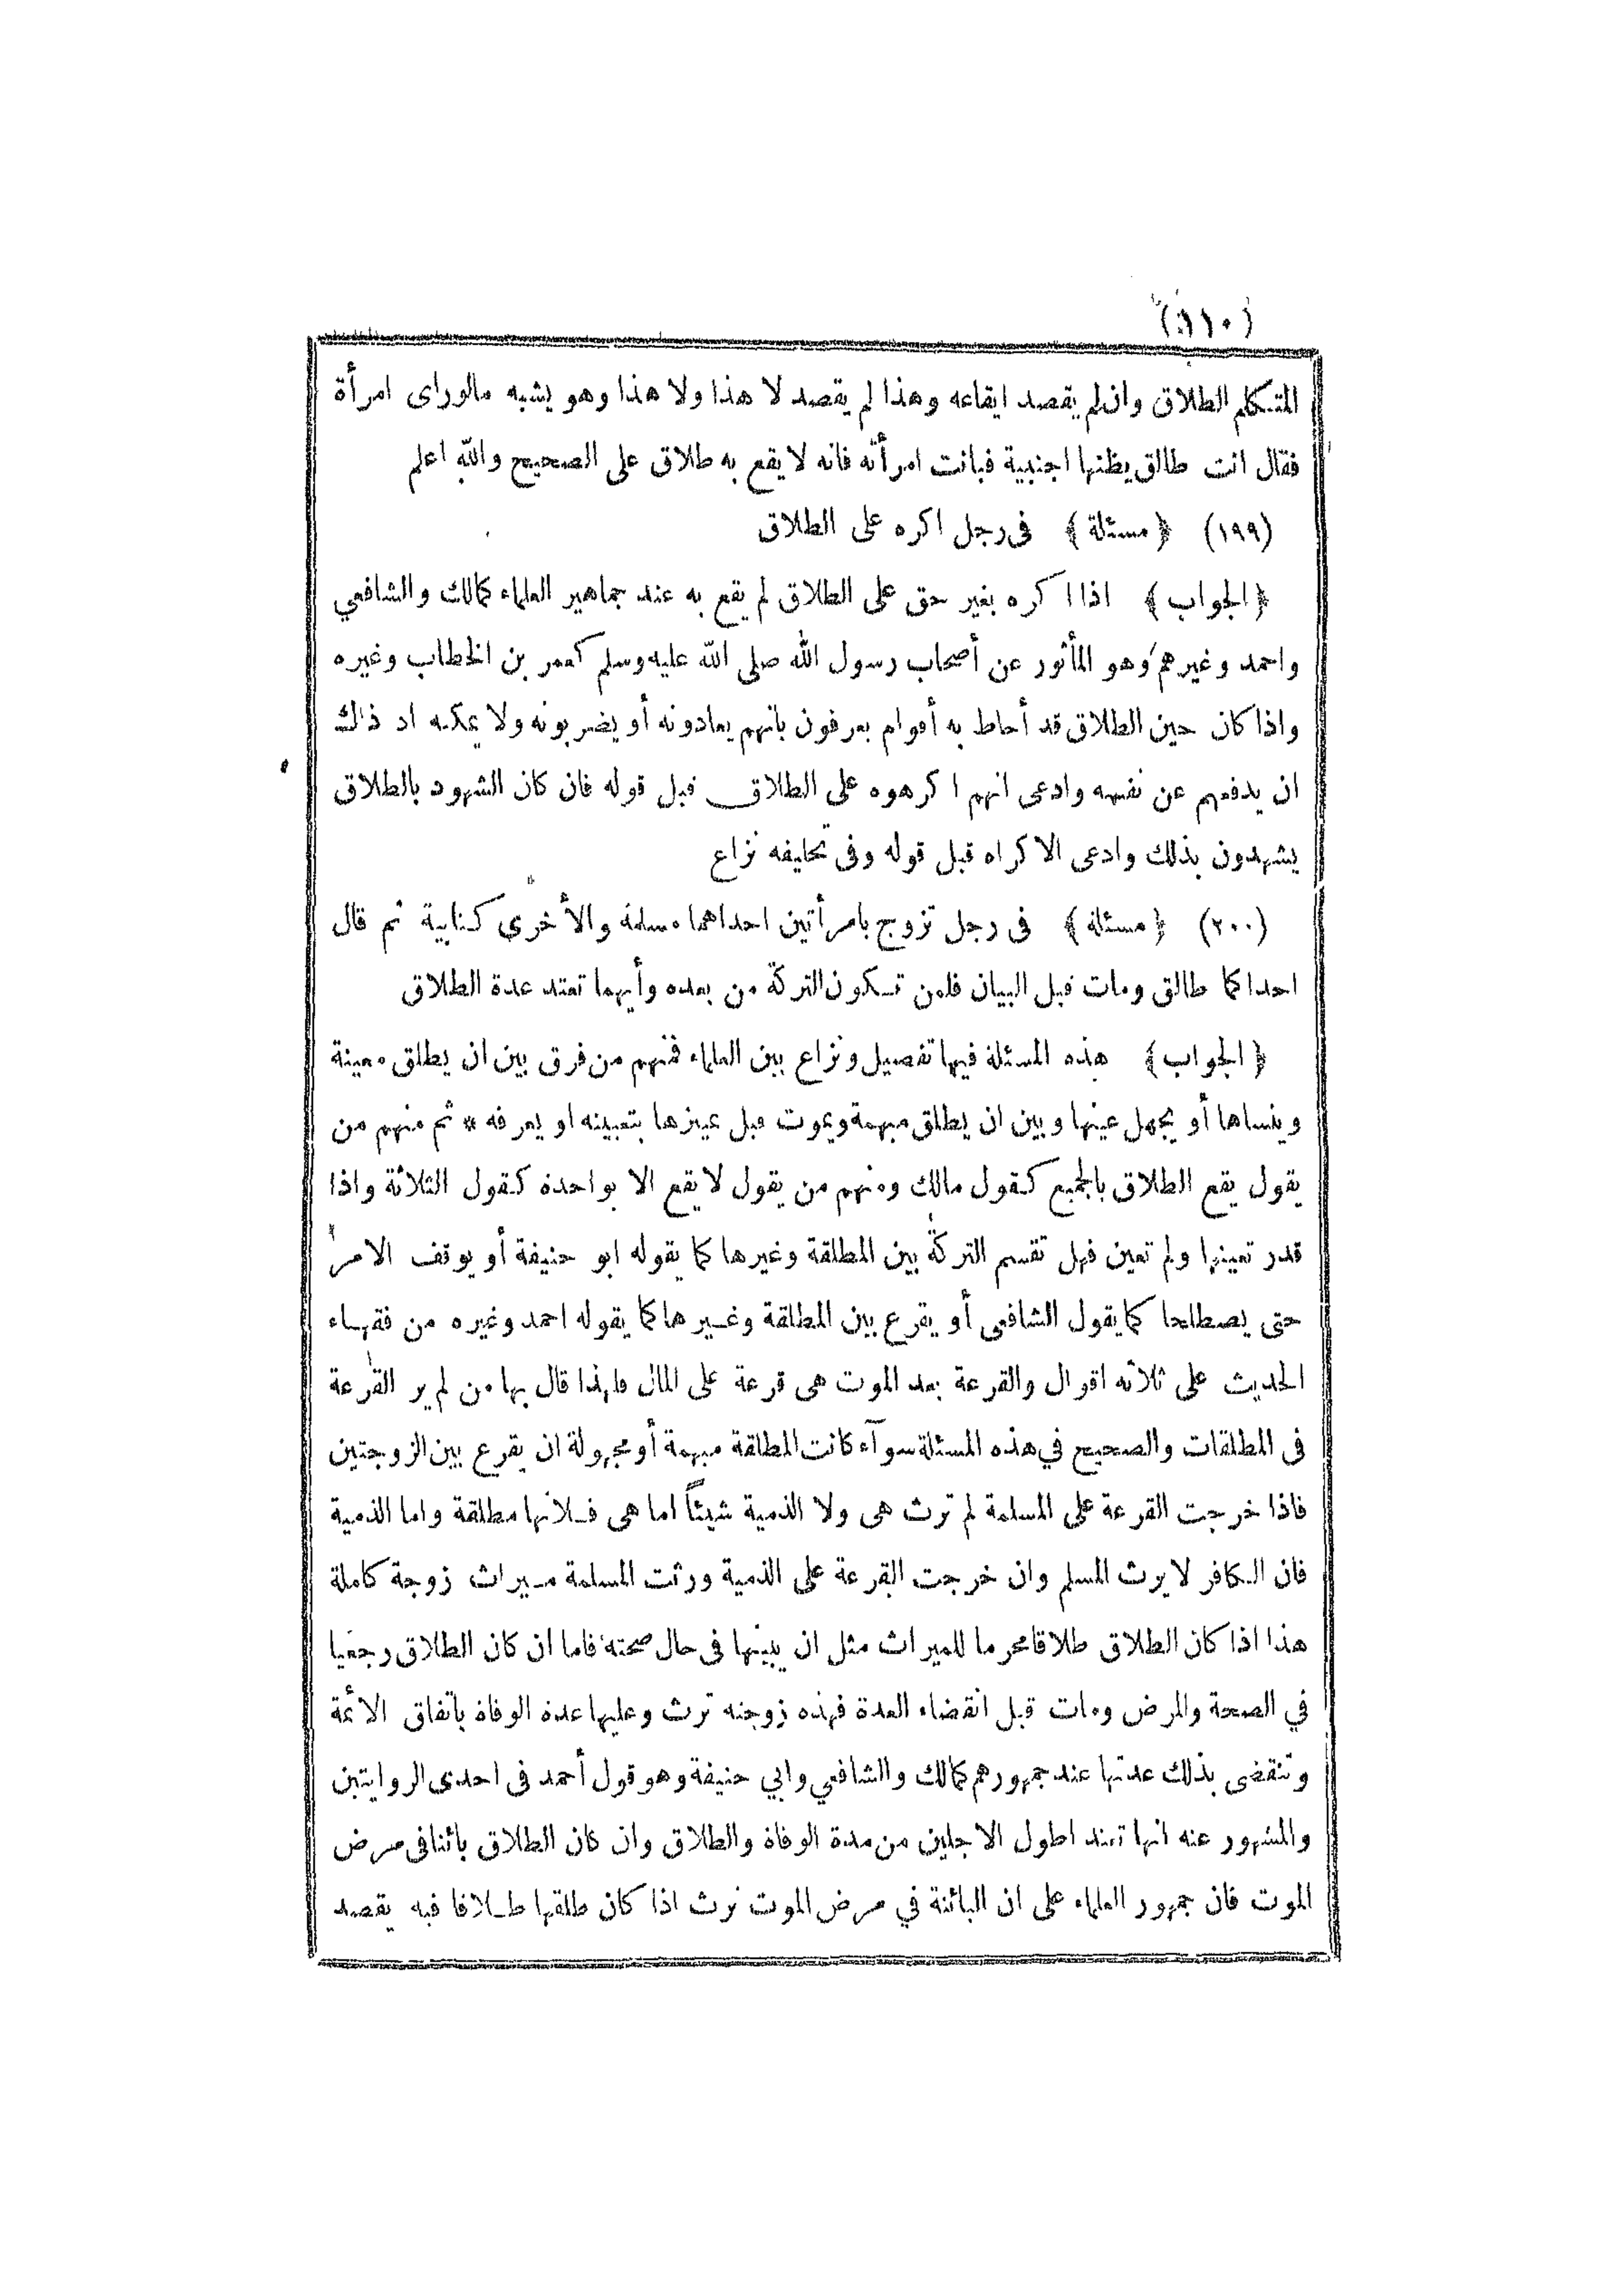 (١١٠)
المتكلم الطلاق وان لم يقصد ايقاعه وهذا لم يقصد لا هذا ولا هذا وهو يشبه مالو راى امرأة
فقال انت طالق يظنها اجنبية فبانت امرأته فانه لا يقع به طلاق على الصحيح والله اعلم
(١٩٩) ﴿مسئلة﴾ فى رجل اكره على الطلاق
﴿الجواب﴾ اذا اكره بغير حق على الطلاق لم يقع به عند جماهير العلماء كمالك والشافعي
واحمد وغيرهم وهو المأثور عن أصحاب رسول الله صلى الله عليه وسلم كعمر بن الخطاب وغيره
واذا كان حين الطلاق قد أحاط به أقوام يعرفون بانهم يعادونه أو يضربونه ولا يمكنه اذ ذاك
ان يدفعهم عن نفسه وادعى انهم اكرهوه على الطلاق قبل قوله فان كان الشهود بالطلاق
يشهدون بذلك وادعى الاكراه قبل قوله وفى تحليفه نزاع
(٢٠٠) ﴿مسئلة﴾ فى رجل تزوج بامرأتين احداهما مسلمة والأخرى كتابية ثم قال
احداكما طالق ومات قبل البيان فلمن تكون التركة من بعده وأيهما تعتد عدة الطلاق
﴿الجواب﴾ هذه المسئلة فيها تفصيل ونزاع بين العلماء فمنهم من فرق بين ان يطلق معينة
وينساها أو يجهل عينها وبين ان يطلق مبهمة ويموت قبل تمييزها بتعيينه او يعرفه * ثم منهم من
يقول يقع الطلاق بالجميع كقول مالك ومنهم من يقول لا يقع الا بواحدة كقول الثلاثة واذا
قدر تعينها ولم تعين فهل تقسم التركة بين المطلقة وغيرها كما يقوله ابو حنيفة أو يوقف الامر
حتى يصطلحا كما يقول الشافعى أو يقرع بين المطلقة وغيرها كما يقوله احمد وغيره من فقهاء
الحديث على ثلاثه اقوال والقرعة بعد الموت هى قرعة على المال فلهذا قال بها من لم ير القرعة
فى المطلقات والصحيح في هذه المسئلة سوآء كانت المطلقة مبهمة أو مجهولة ان يقرع بين الزوجتين
فاذا خرجت القرعة على المسلمة لم ترث هى ولا الذمية شيئاً اما هى فلانها مطلقة واما الذمية
فان الكافر لا يرث المسلم وان خرجت القرعة على الذمية ورثت المسلمة ميراث زوجة كاملة
هذا اذا كان الطلاق طلاقا محرما للميراث مثل ان يبينها فى حال صحته فاما ان كان الطلاق رجعيا
في الصحة والمرض ومات قبل انقضاء العدة فهذه زوجته ترث وعليها عدة الوفاة باتفاق الائمة
وتنقضى بذلك عدتها عند جمهورهم كمالك والشافعي وابي حنيفة وهو قول أحمد فى احدى الروايتين
والمشهور عنه انها تعتد اطول الاجلين من مدة الوفاة والطلاق وان كان الطلاق بائنا فى مرض
الموت فان جمهور العلماء على ان البائنة في مرض الموت ترث اذا كان طلقها طلاقا فيه يقصد